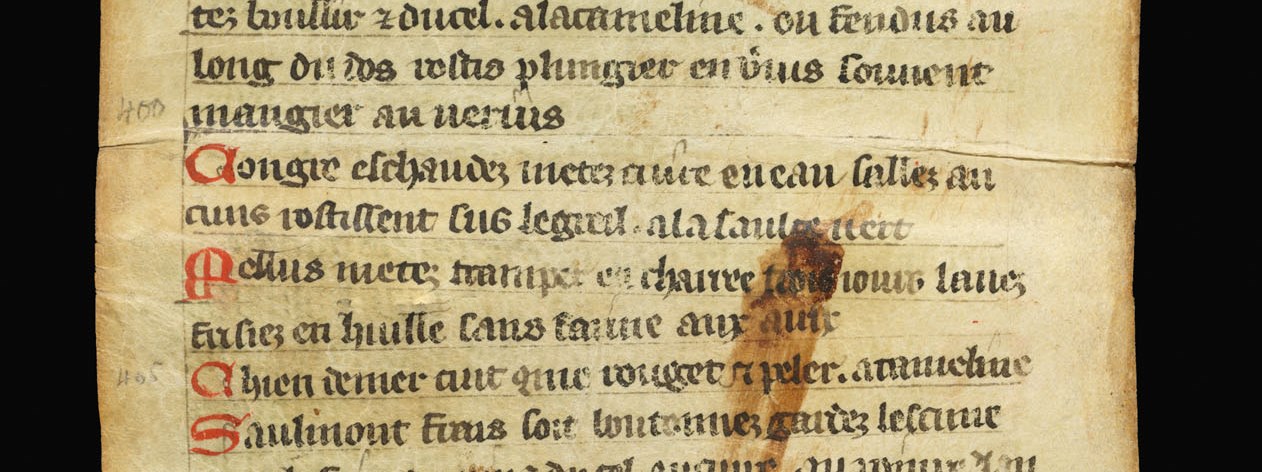 tez boullir ⁊ du cel. a la cameline. ou fendus au
long du dos rostis plungier en vius souuent
mangier au uerius
400
Congre eschaudez metez cuire en eau sallee au
cuns rostissent sus le greil. a la saulce uert
Mellus metez tramper en chauve trois iours lauez
frisiez en huille sans farine aux aux
405
Chien de mer cuit 9me rouget ⁊ peler. a cameline
Saulmont frais soit boutonnez gardez l escune